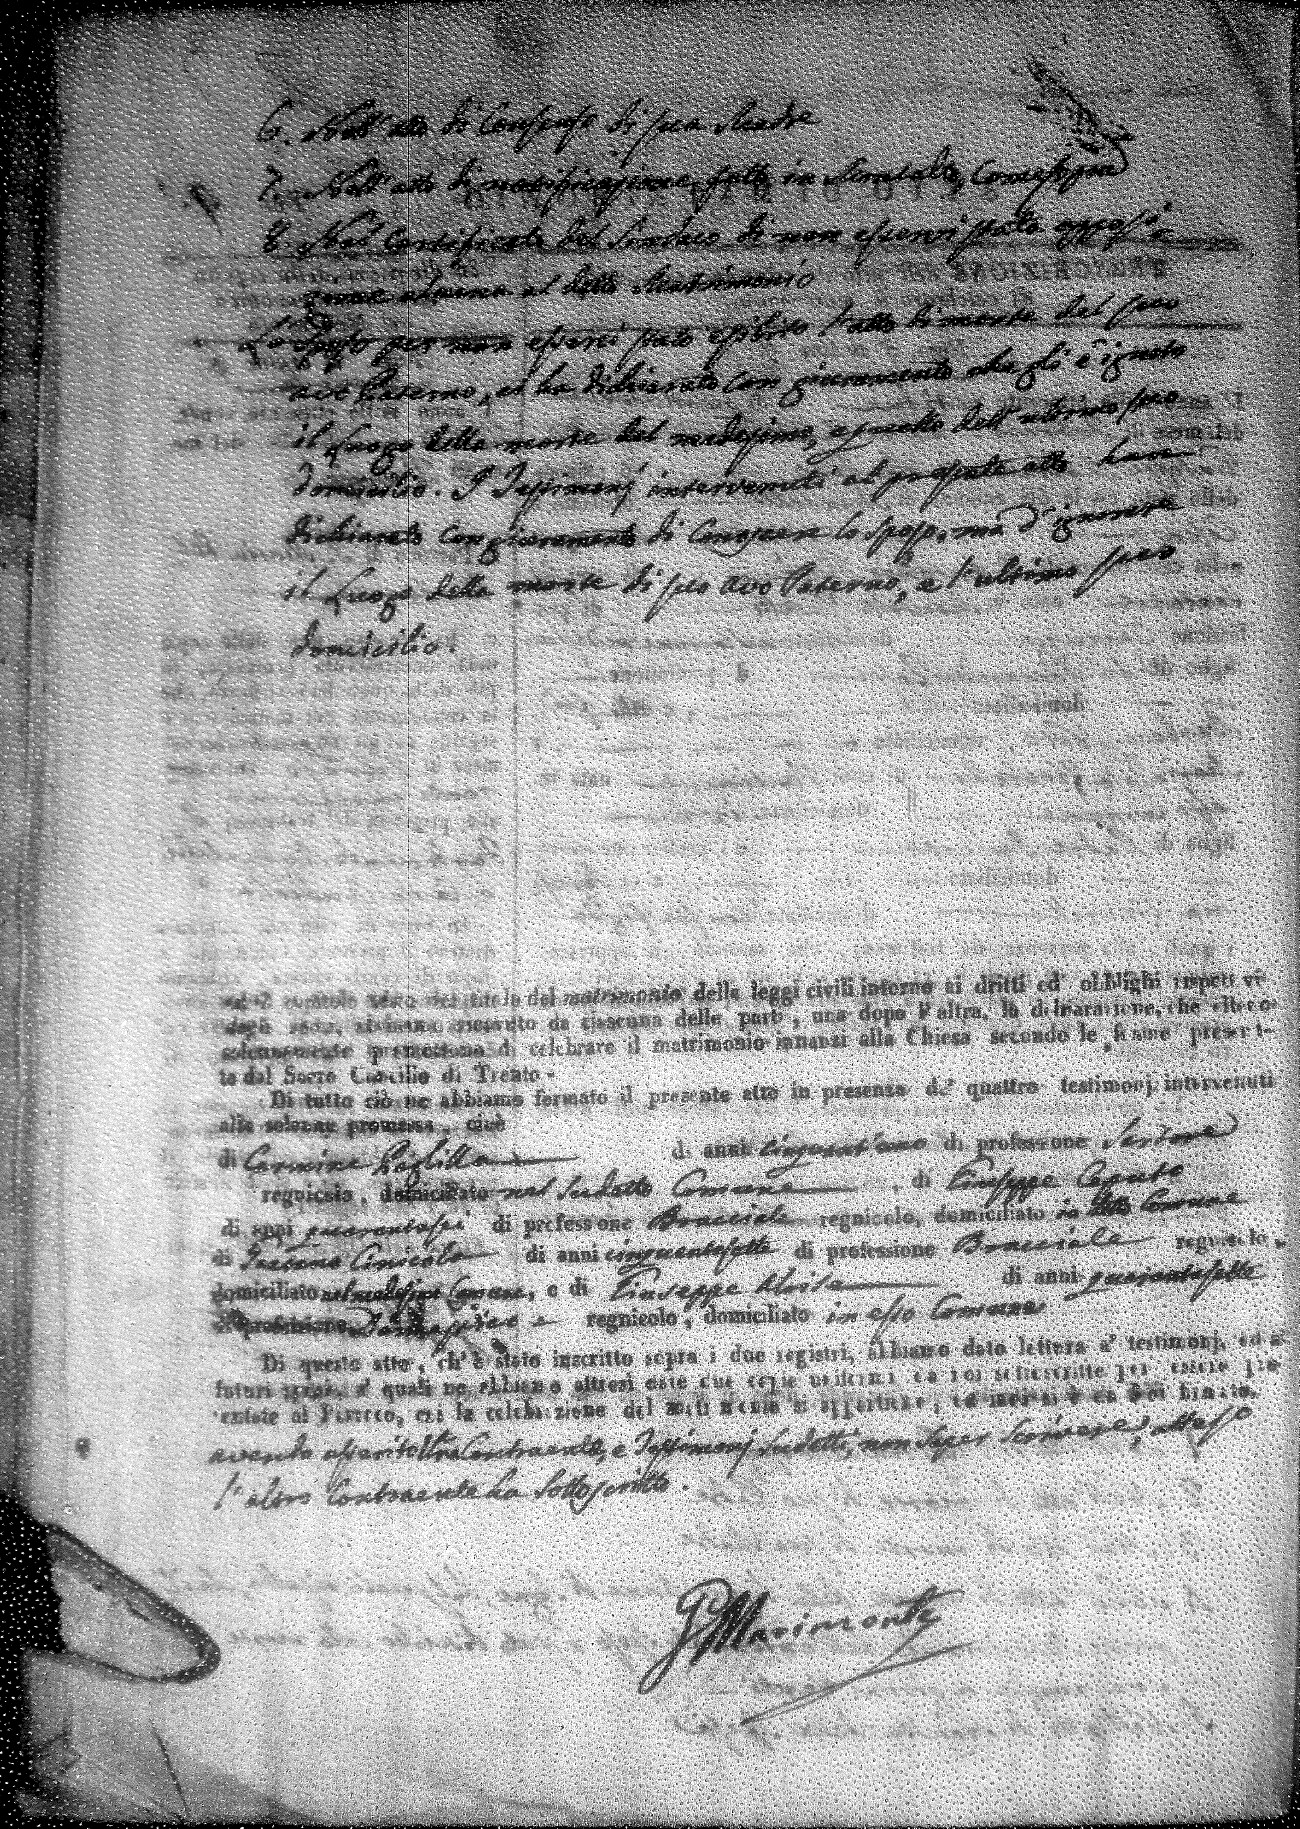 6. Nell'atto di Consenso di sua Madre
7. Nell'atto di notificazione fatta in
8. Nel Certificato del Sindaco di non esservi stata opposi
zione alcuna al detto Matrimonio
Lo Sposo per non essersi stato esibito l'atto di morte del suo
avo Paterno, ed ha dichiarato con giuramento che gli è ignoto
il luogo della morte del medesimo, e quello dell'ultimo suo
domicilio. I Testimonj intervenuti al presente atto hanno
dichiarato con giuramento di conoscere lo sposo, ma d'ignorare
il luogo della morte di suo avo Paterno, e l'ultimo suo
domicilio.
del matrimonio delle leggi civili intorno ai dritti ed obblighi rispettivi
degli sposi, abbiamo ricevuto da ciascuna delle parti, una dopo l'altra, la dichiarazione, che elleno
solennemente promettono di celebrare il matrimonio innanzi alla Chiesa secondo le forme prescrit-
te dal Sacro Concilio di Trento.
Di tutto ciò ne abbiamo formato il presente atto in presenza de' quattro testimonj intervenuti
alla solenne promessa, cioè
di Carmine di anni cinquant'uno di professione Sartore
regnicolo, domiciliato nel sudetto Comune, di Giuseppe Caputo
di anni quarantasei di professione Bracciale regnicolo, domiciliato in detto Comune
di Gaetano di anni cinquantasette di professione Bracciale regnicolo,
domiciliato nel medesimo Comune, e di Giuseppe di anni quarantasette
di professione regnicolo, domiciliato in esso Comune
Di questo atto, ch'è stato inscritto sopra i due registri, abbiamo dato lettura a' testimonj, ed a'
futuri sposi, a' quali ne abbiamo altresì date due copie uniformi da noi sottoscritte per essere pre-
sentate al Parroco, cui la celebrazione del matrimonio si appartiene, ed indi si è da noi firmato,
avendo asserito Contraente, e Testimonj sudetti, non saper scrivere,
l'altro Contraente ha sottoscritto.
Marimonte